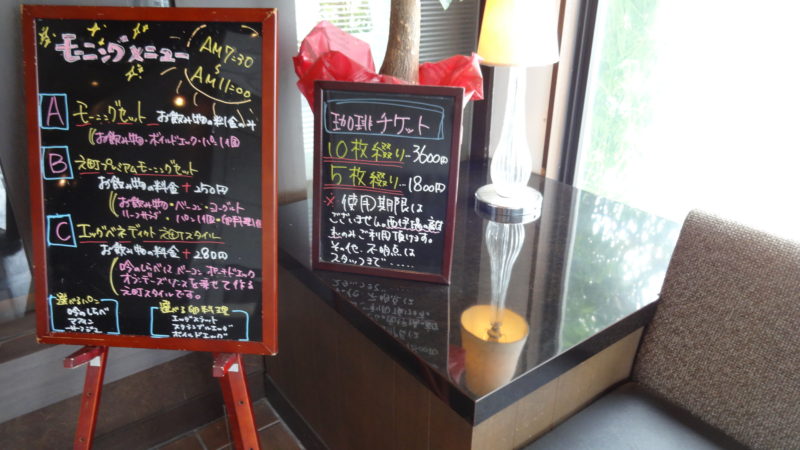 モーニングメニュー
AM7:30
〜
AM11:00
A モーニングセット お飲み物の料金のみ
(お飲み物・ボイルドエッグ・パン1個
B 元町プレミアムモーニングセット
お飲み物の料金+250円
(お飲み物・ベーコン・ヨーグルト
ハーフサラダ・パン1個・卵料理1個
C エッグベネディクト元町スタイル
お飲み物の料金+280円
吟のしらべにベーコン ポーチドエッグ
オランデーズソースを乗せて作る
元町スタイルです。
選べるパン
吟のしらべ
マフィン
選べる卵料理
エッグスラット
スクランブルエッグ
ボイルドエッグ
珈琲チケット
10枚綴り…3600円
5枚綴り…1800円
※使用期限は
ございませんの
のみご利用頂けます。
その他、不明点は
スタッフまで……